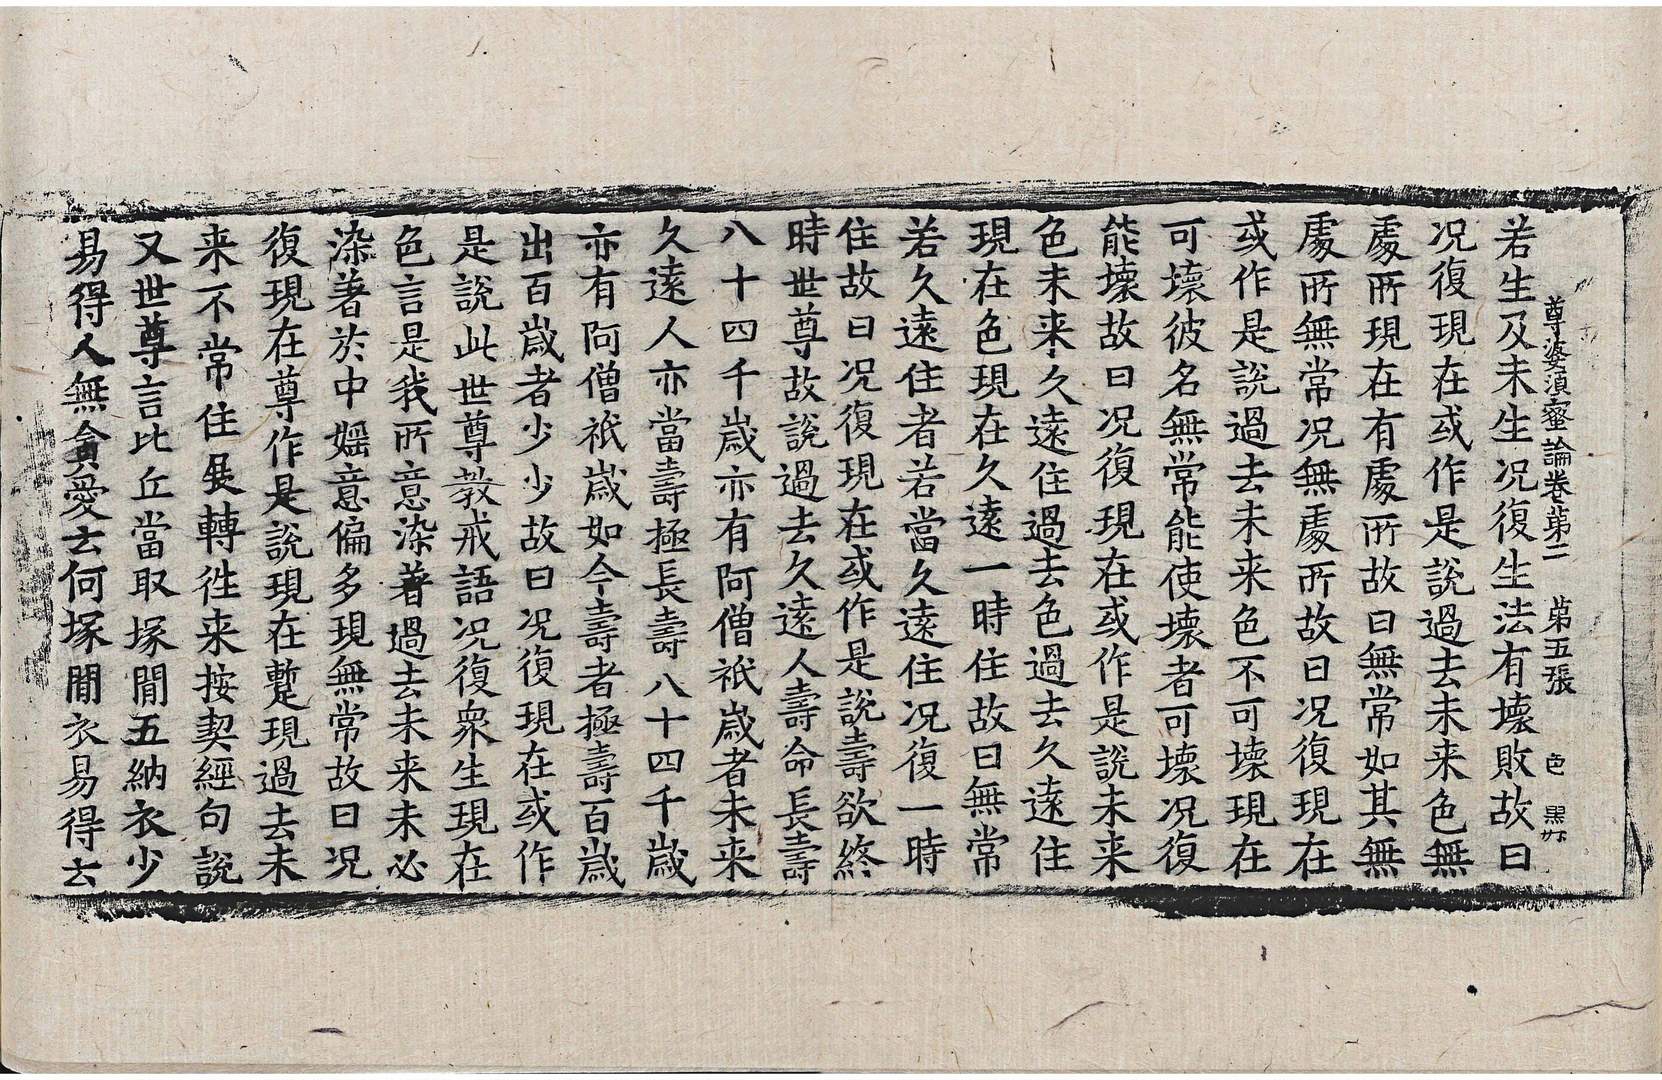 尊婆湏蜜論卷苐二 苐五張 色 黑
若生及未生况復生法有壞敗故曰
况復現在或作是說過去未来色無
處所現在有處所故曰無常如其無
處所無常况無處所故曰况復現在
或作是說過去未来色不可壞現在
可壞彼名無常能使壞者可壞况復
能壞故曰况復現在或作是說未来
色未来久遠住過去色過去久遠住
現在色現在久遠一時住故曰無常
若久遠住者若當久遠住况復一時
住故曰况復現在或作是說壽欲終
時世尊故說過去久遠人壽命長壽
八十四千歲亦有阿僧祇歲者未来
久遠人亦當壽極長壽八十四千歲
亦有阿僧祇歲如今壽者極壽百歲
出百歲者少少故曰况復現在或作
是說此世尊教戒語况復衆生現在
色言是我所意染著過去未来未必
染著於中婬意偏多現無常故曰况
復現在尊作是說現在蹔現過去未
来不常住展轉徃来按契經句說
又世尊言比丘當取塚間五納衣少
易得人無貪愛云何塚間衣易得云